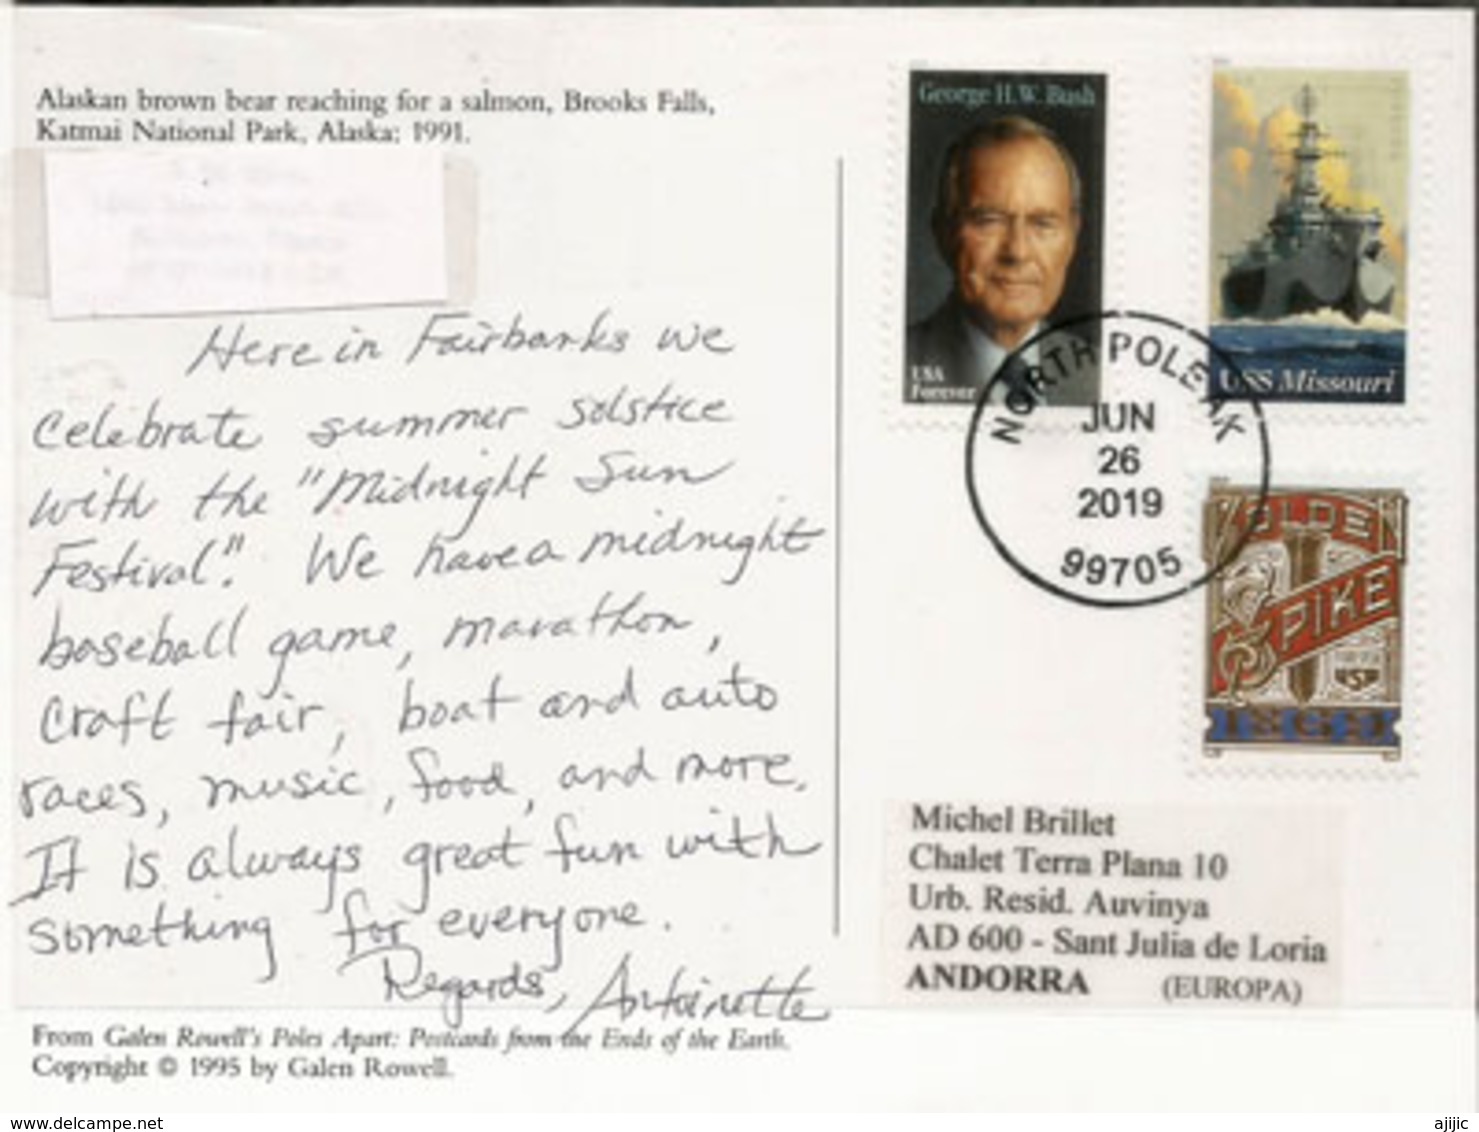 Alaskan brown bear reaching for a salmon, Brooks Falls,
Katmai National Park, Alaska; 1991.
Here in Fairbanks we
celebrate summer solstice
with the "Midnight Sun
Festival". We have a midnight
baseball game, marathon,
craft fair, boat and auto
races, music, food, and more.
It is always great fun with
something for everyone.
Regards, Antoinette
From Galen Rowell's Poles Apart: Postcards from the Ends of the Earth.
Copyright © 1995 by Galen Rowell.
George H.W. Bush
USA
Forever
USS Missouri
NORTH POLE AK
JUN
26
2019
99705
GOLDEN
SPIKE
1869
Michel Brillet
Chalet Terra Plana 10
Urb. Resid. Auvinya
AD 600 - Sant Julia de Loria
ANDORRA (EUROPA)
www.delcampe.net
ajijic